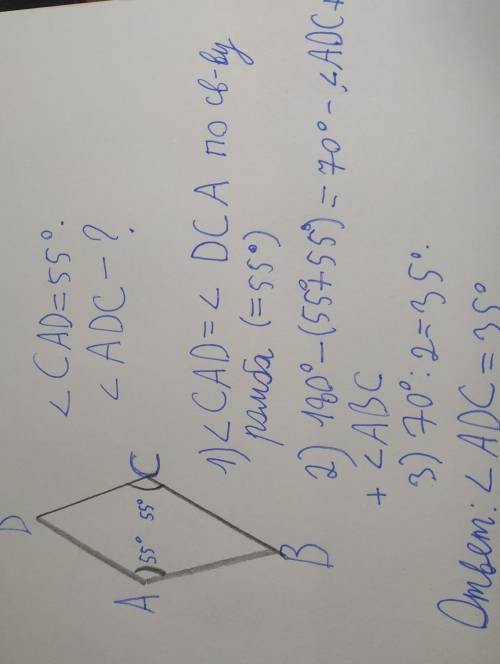 ∠CAD=55°.
∠ADC-?
D
A
55°
55°
C
B
1)∠CAD=∠DCA по св-ву
ромба (=55°)
2) 180°-(55°+55°)=70°-∠ADC+
+∠ABC
3) 70°:2=35°.
Ответ: ∠ADC=35°